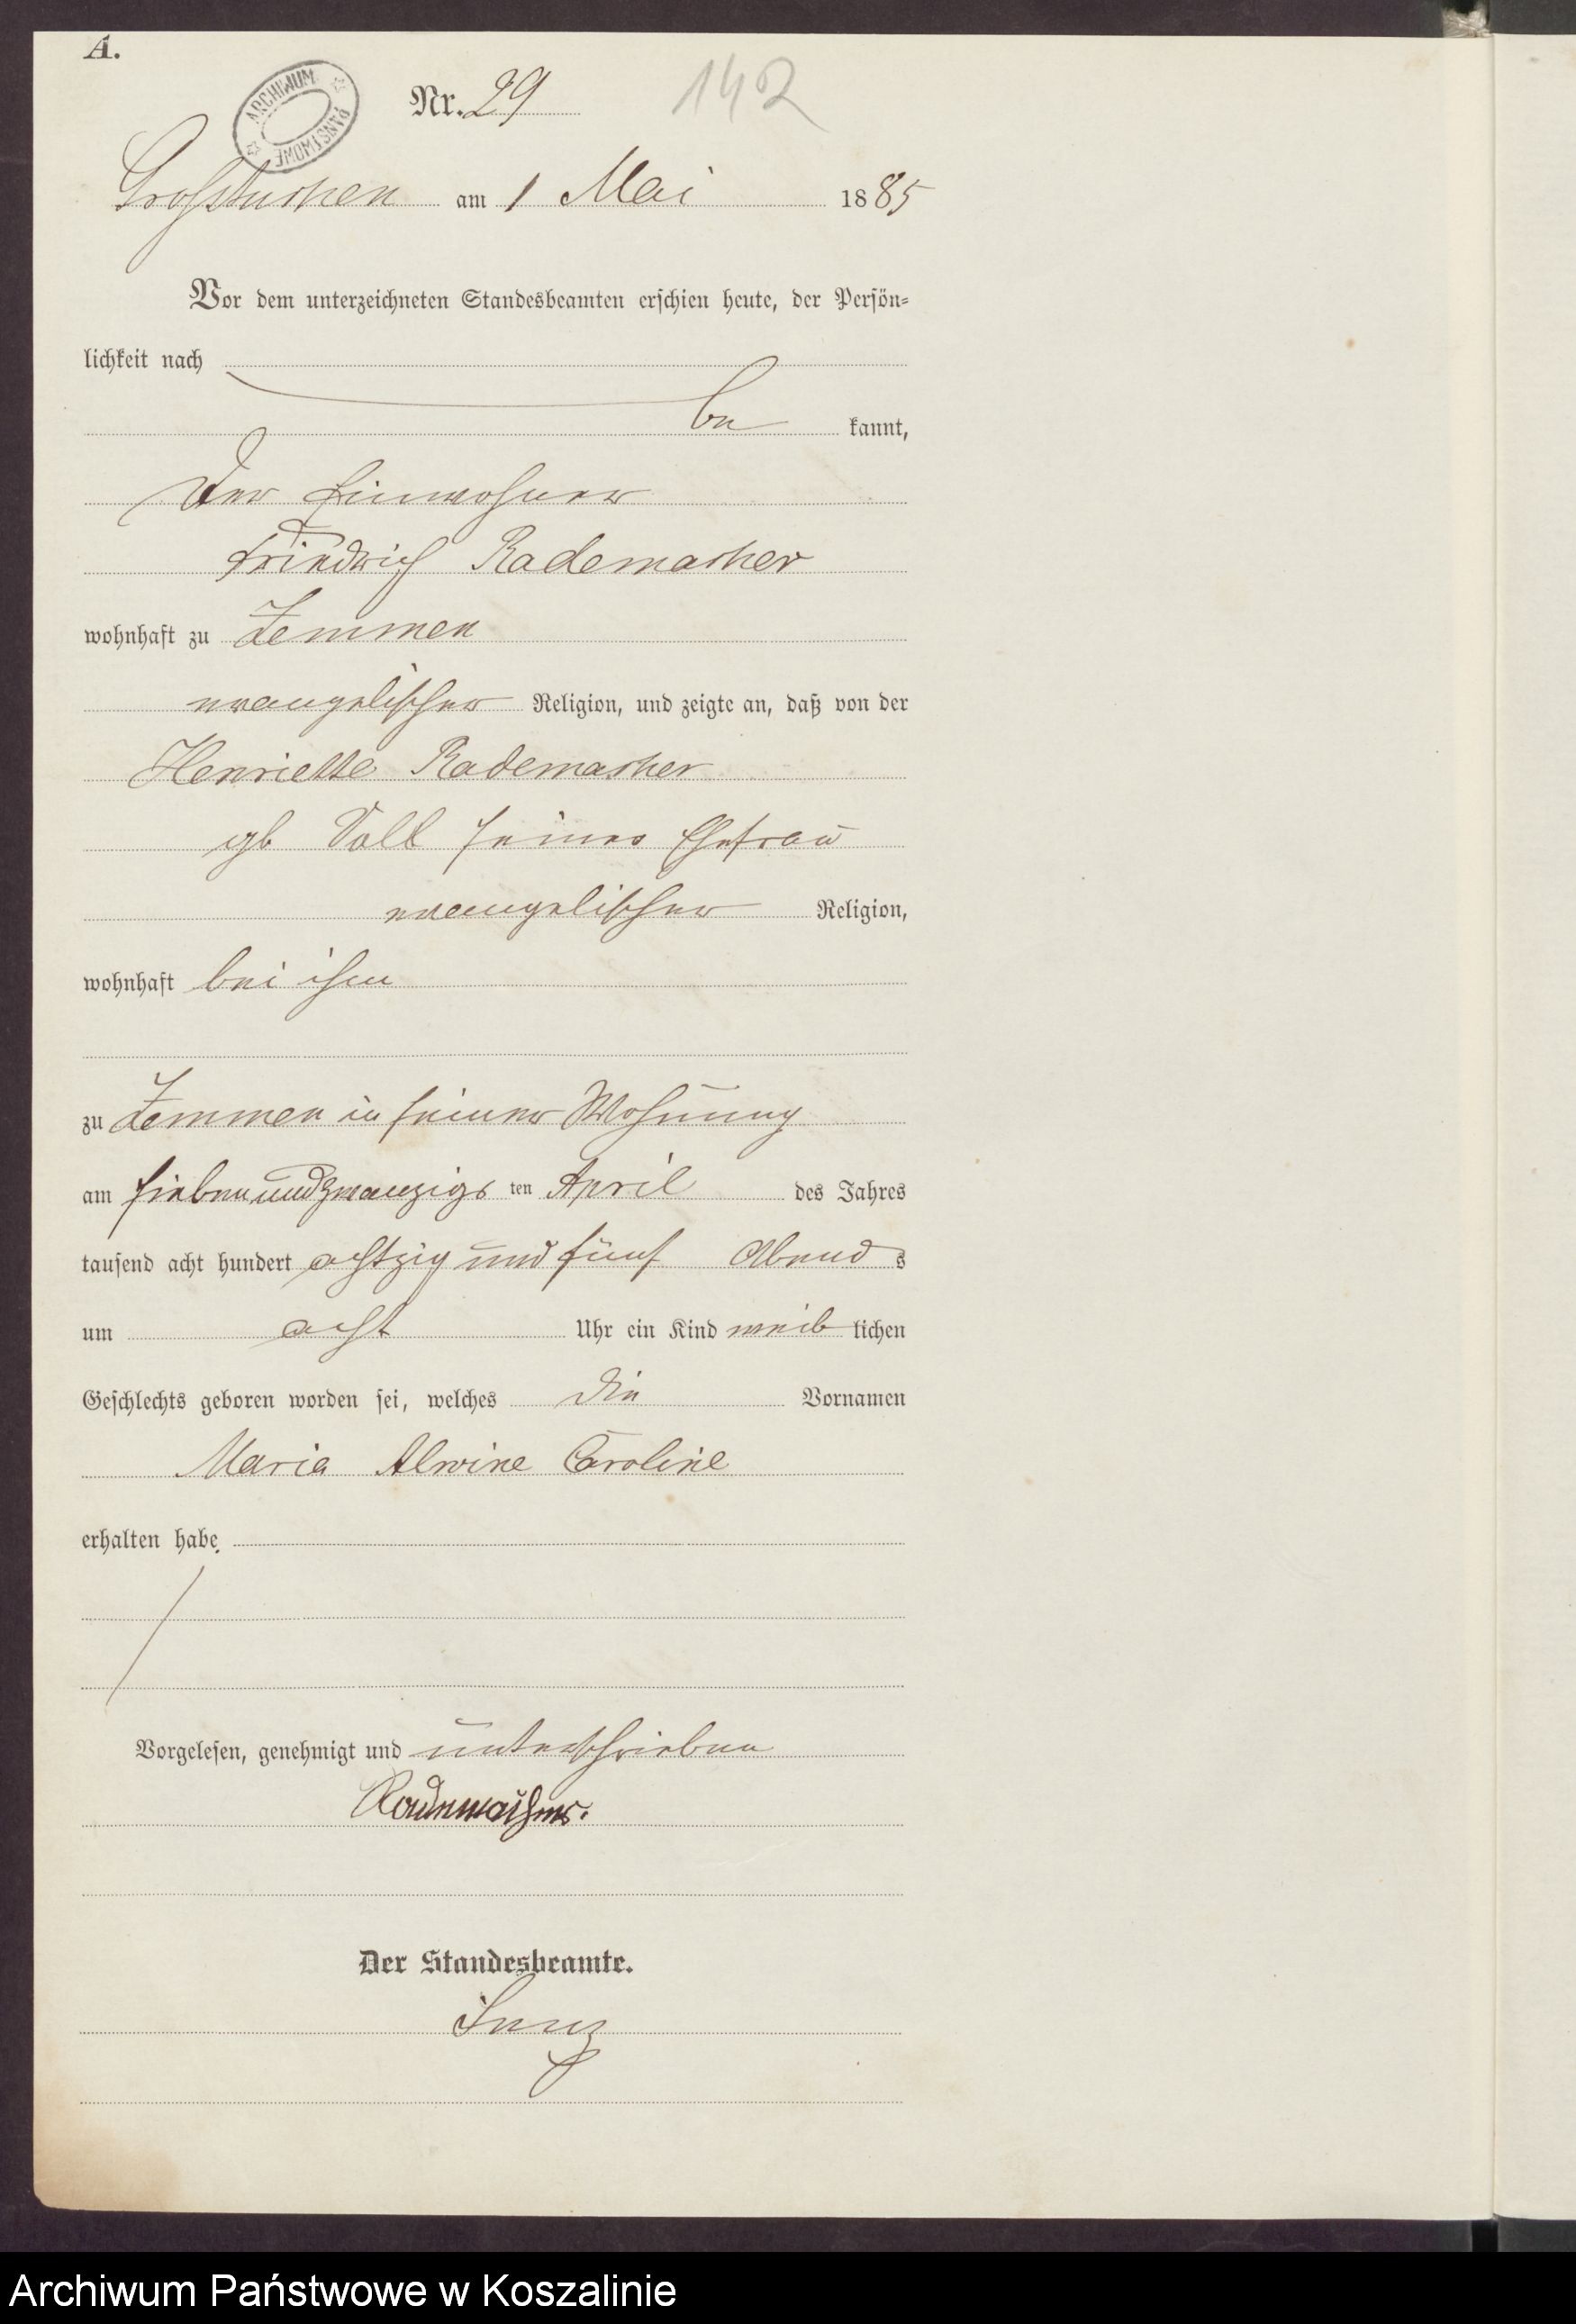 A.
ARCHIWUM PAŃSTWOWE
Nr. 29
142
Großtuchen am 1 Mai 1885
Vor dem unterzeichneten Standesbeamten erschien heute, der Persön-
lichkeit nach
be kannt,
der Einwohner
Friedrich Rademacher
wohnhaft zu Zemmen
evangelischer Religion, und zeigte an, daß von der
Henriette Rademacher
gb Voll seiner Ehefrau
evangelischer Religion,
wohnhaft bei ihm
zu Zemmen in seiner Wohnung
am siebenundzwanzigs ten April des Jahres
tausend acht hundert achtzig und fünf Abend s
um acht Uhr ein Kind weib lichen
Geschlechts geboren worden sei, welches die Vornamen
Maria Alwine Caroline
erhalten habe.
Vorgelesen, genehmigt und unterschrieben
Rademacher.
Der Standesbeamte.
Archiwum Państwowe w Koszalinie